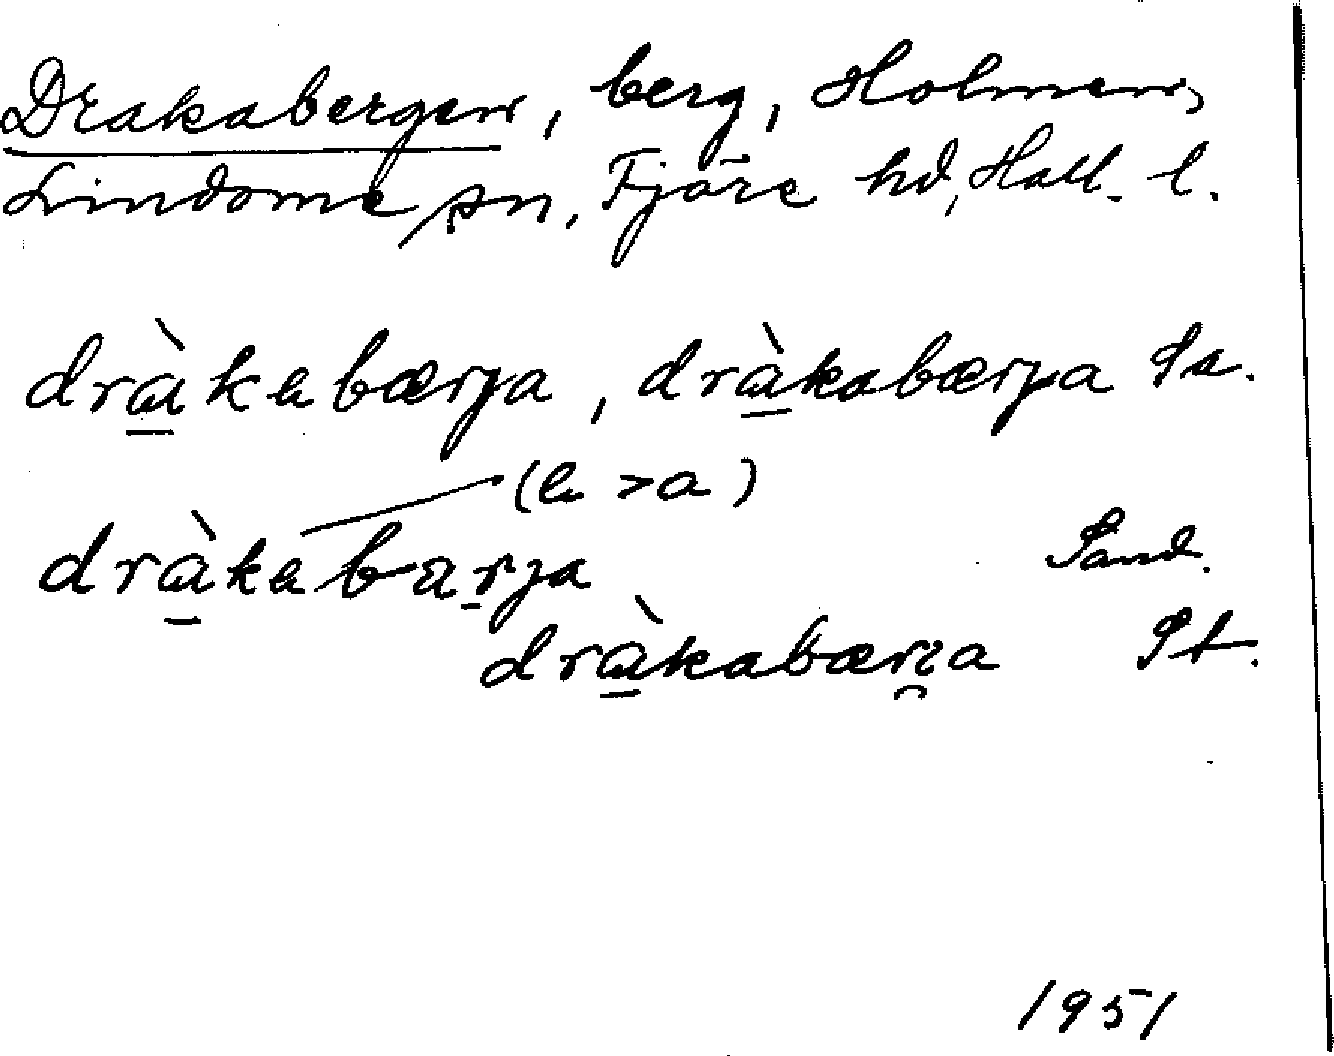 Drakabergen, berg, Holmen,
Lindome sn, Fjäre hd, Hall. l.
dràkabærja, dràkabærja Sa.
(a > a)
dràkabarja Sand.
dràkabæria St.
1951